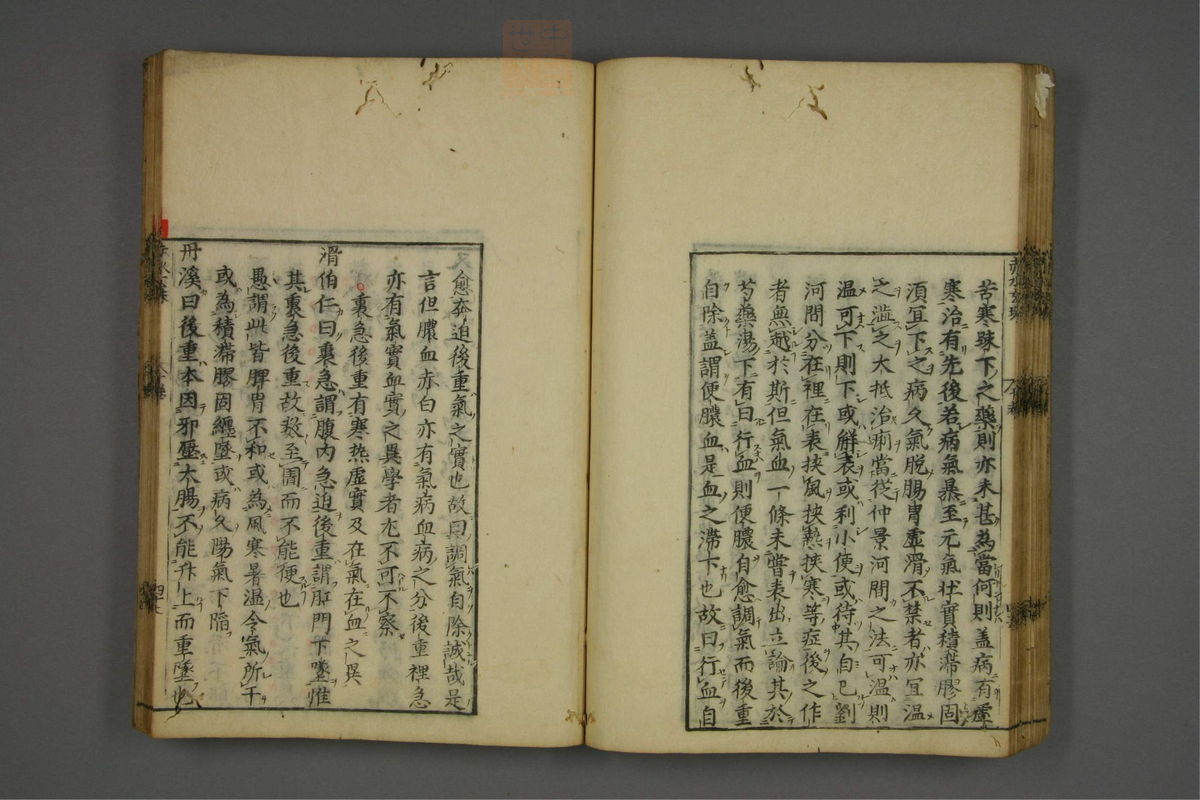 苦寒踈下之藥則亦未甚為當何則盖病有虛
寒治有先後若病氣暴至元氣壮實積滯膠固
須宜下之病久氣脫腸胃虛滑不禁者亦宜温
之澁之大抵治痢當從仲景河間之法可温則
温可下則下或解表或利小便或待其自已劉
河間分在裡在表挾風挾熱挾寒等症後之作
者無越於斯但氣血一條未嘗表出立論其於
芍藥湯下有曰行血則便膿自愈調氣而後重
自除盖謂便膿血是血之滯下也故曰行血自
愈奔迫後重氣之實也故曰調氣自除誠哉是
言但膿血赤白亦有氣病血病之分後重裡急
亦有氣實血實之異學者尤不可不察
裏急後重有寒热虛實及在氣在血之異
滑伯仁曰裏急謂腹内急迫後重謂肛門下墜惟
其裏急後重故数至圊而不能便也
愚謂此皆脾胃不和或為風寒暑湿令氣所干
或為積滯膠固纏墜或病久陽氣下陷
丹溪曰後重本因邪壓大腸不能升上而重墜也